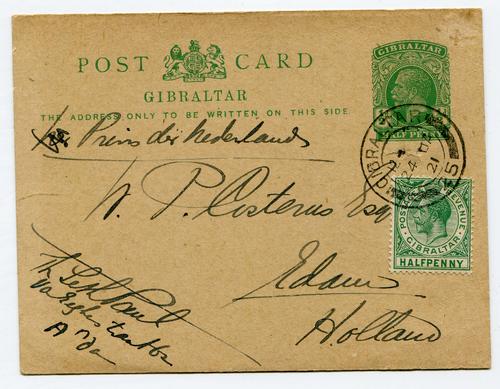 POST CARD
GIBRALTAR
THE ADDRESS ONLY TO BE WRITTEN ON THIS SIDE
GIBRALTAR
HALF PENNY
Prins der Nederlanden
W. P. Costerus Esq
Edam
Holland
GIBRALTAR
24
21
POSTAGE REVENUE
GIBRALTAR
HALFPENNY